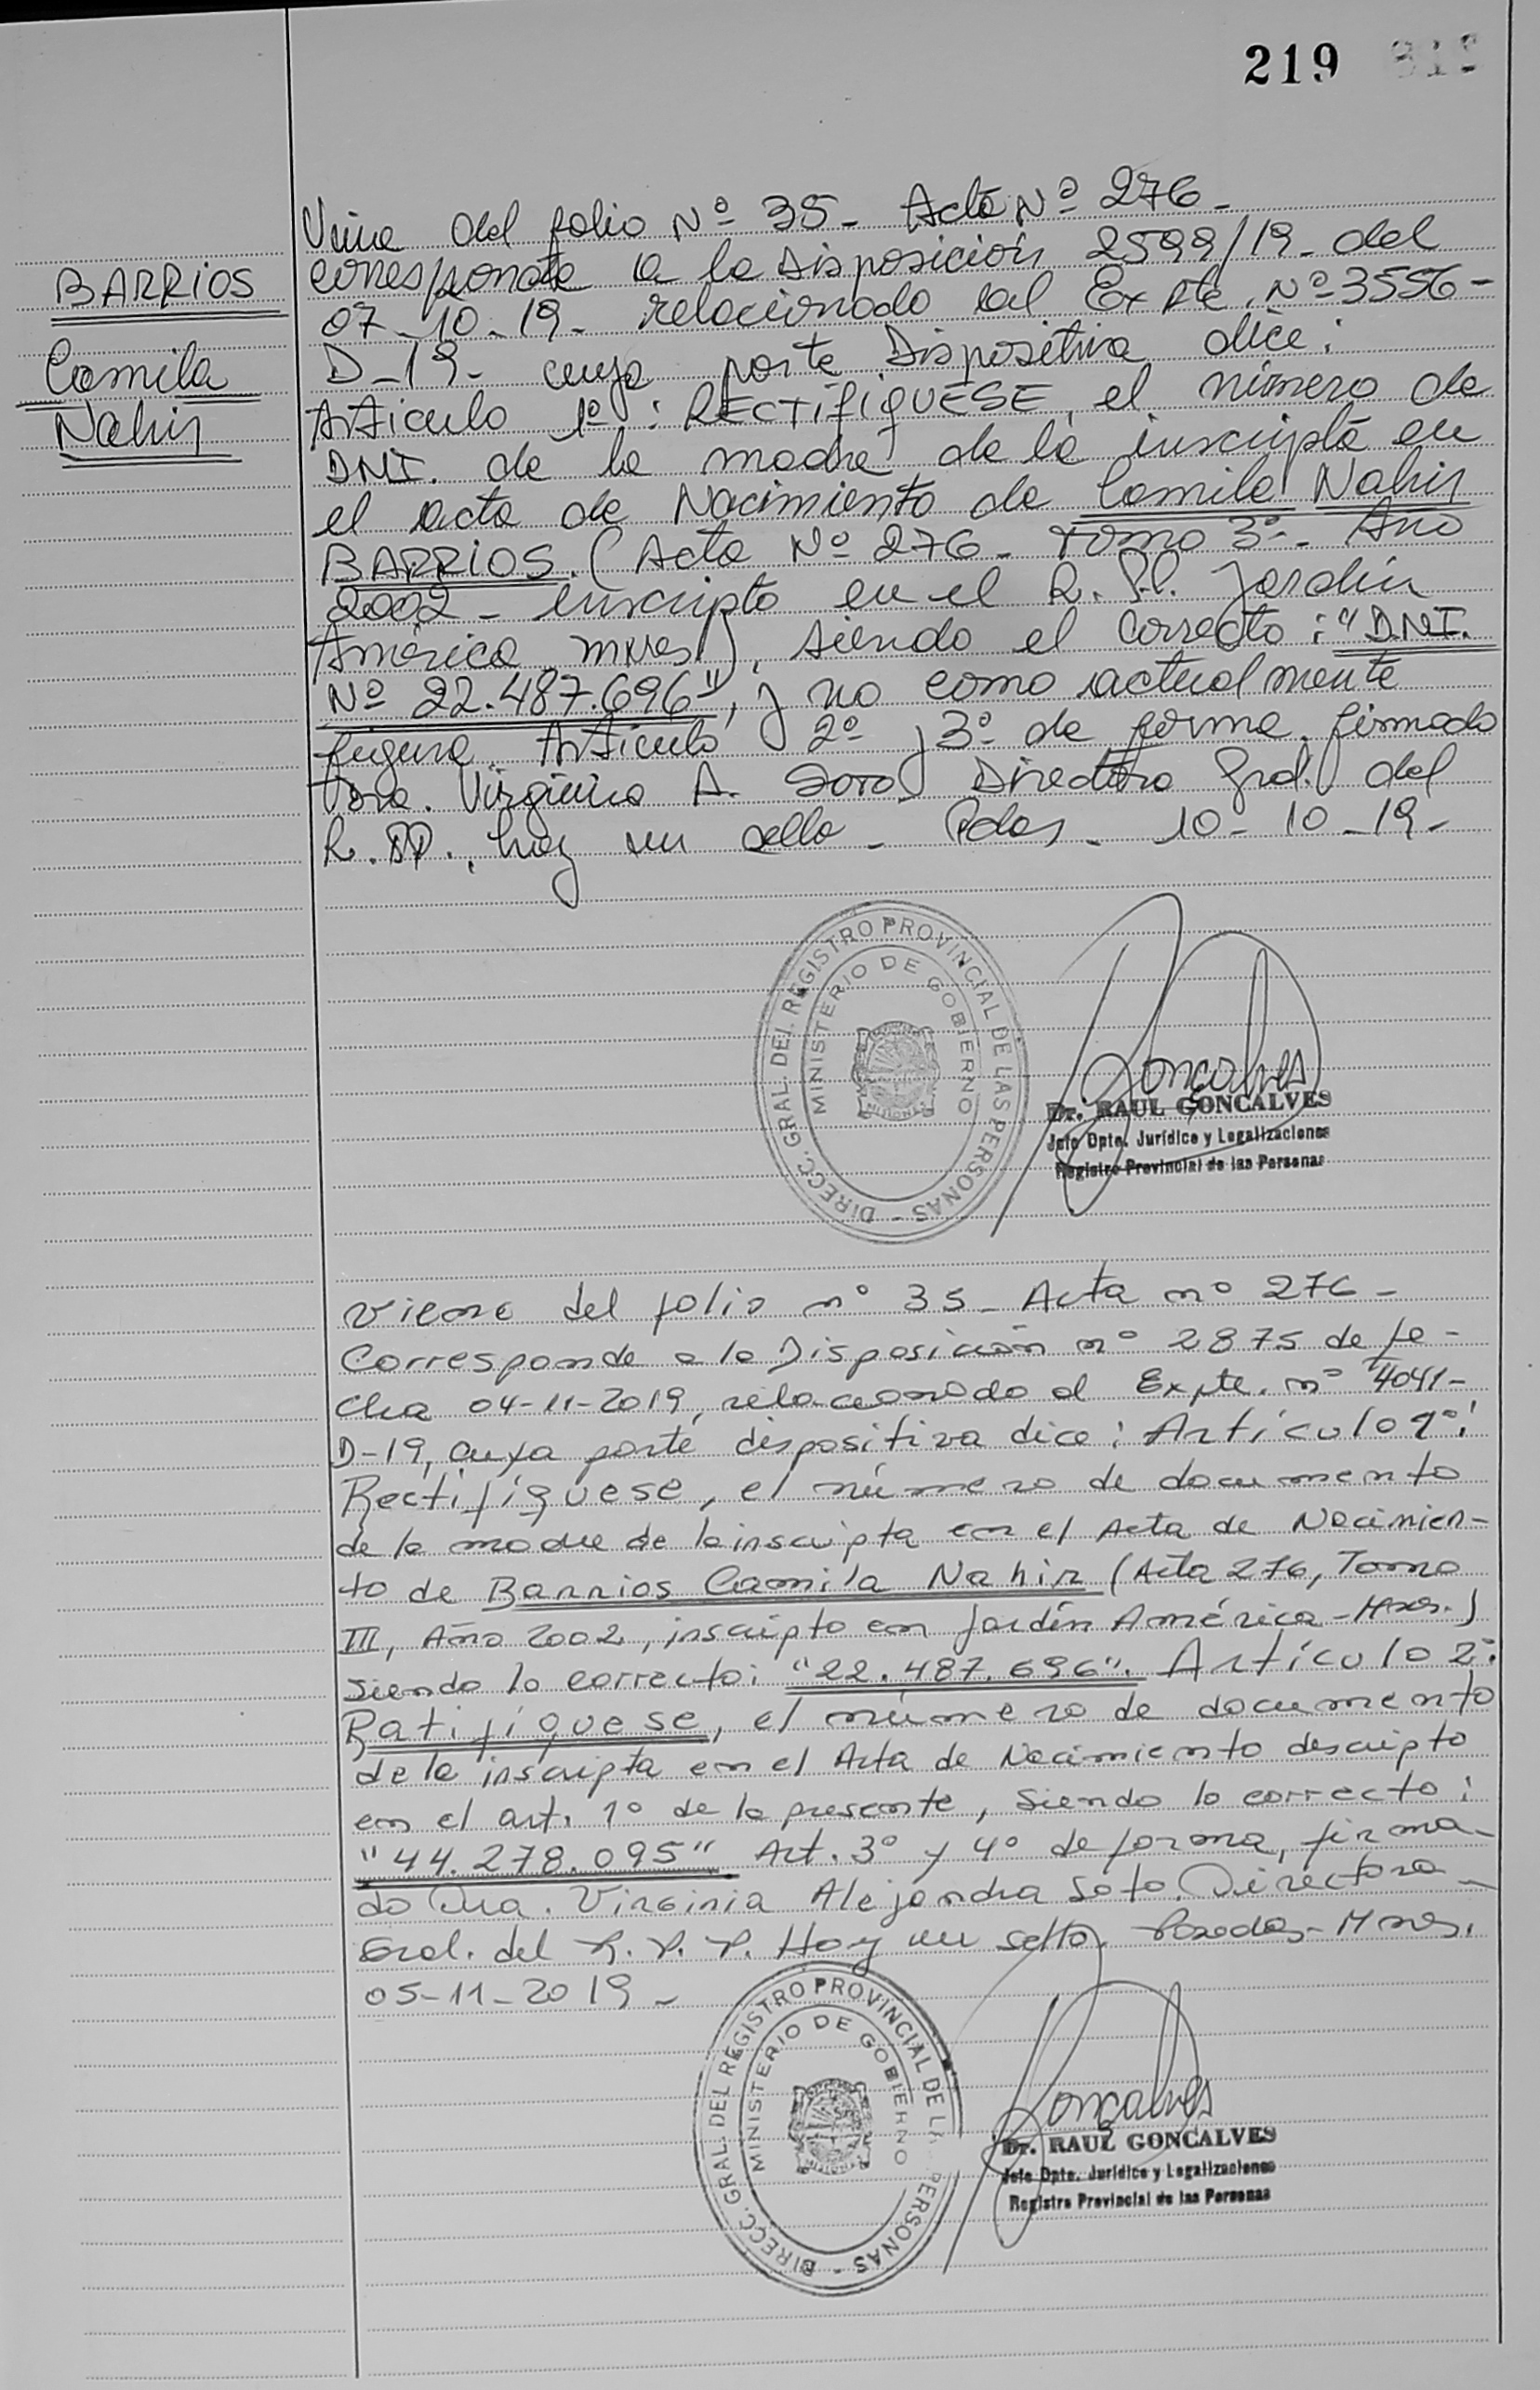 219
BARRIOS
Camila
Nahir
Viene del folio Nº 35 - Acta Nº 276 -
corresponde a la Disposición 2599/19 - del
07-10-19 - relacionado al Expte. Nº 3556 -
D-19 - cuya parte Dispositiva dice:
Artículo 1º: RECTIFIQUESE, el número de
DNI. de la madre de la inscripta en
el acta de Nacimiento de Camila Nahir
BARRIOS. (Acta Nº 276 - Tomo 3º - Año
2002 - inscripto en el R.P.P. Jardín
América, Mnes), siendo el correcto: "D.N.I.
Nº 22.487.696", y no como actualmente
figura. Artículo 2º y 3º de forma. firmado
Dra. Virginia A. Soto. Directora Gral. del
R.PP., hay un sello - Pdas - 10-10-19 -
DIRECC. GRAL. DEL REGISTRO PROVINCIAL DE LAS PERSONAS -
MINISTERIO DE GOBIERNO
MISIONES
Goncalves
Dr. RAUL GONCALVES
Jefe Dpto. Jurídico y Legalizaciones
Registro Provincial de las Personas
Viene del folio nº 35 - Acta nº 276 -
Corresponde a la Disposición nº 2875 de fe-
cha 04-11-2019, relacionado al Expte. nº 4041-
D-19, cuya parte dispositiva dice: Artículo 1º:
Rectifíquese, el número de documento
de la madre de la inscripta en el Acta de Nacimien-
to de Barrios Camila Nahir (Acta 276, Tomo
III, Año 2002, inscripto en Jardín América - Mnes.)
siendo lo correcto: "22.487.696". Artículo 2º:
Ratifíquese, el número de documento
de la inscripta en el Acta de Nacimiento descripto
en el art. 1º de la presente, siendo lo correcto:
"44.278.095" Art. 3º y 4º de forma, firma-
do Dra. Virginia Alejandra Soto. Directora
Gral. del R.P.P. Hay un sello. Posadas - Mnes.
05-11-2019 -
DIRECC. GRAL. DEL REGISTRO PROVINCIAL DE LA PERSONAS -
MINISTERIO DE GOBIERNO
MISIONES
Goncalves
Dr. RAUL GONCALVES
Jefe Dpto. Jurídico y Legalizaciones
Registro Provincial de las Personas